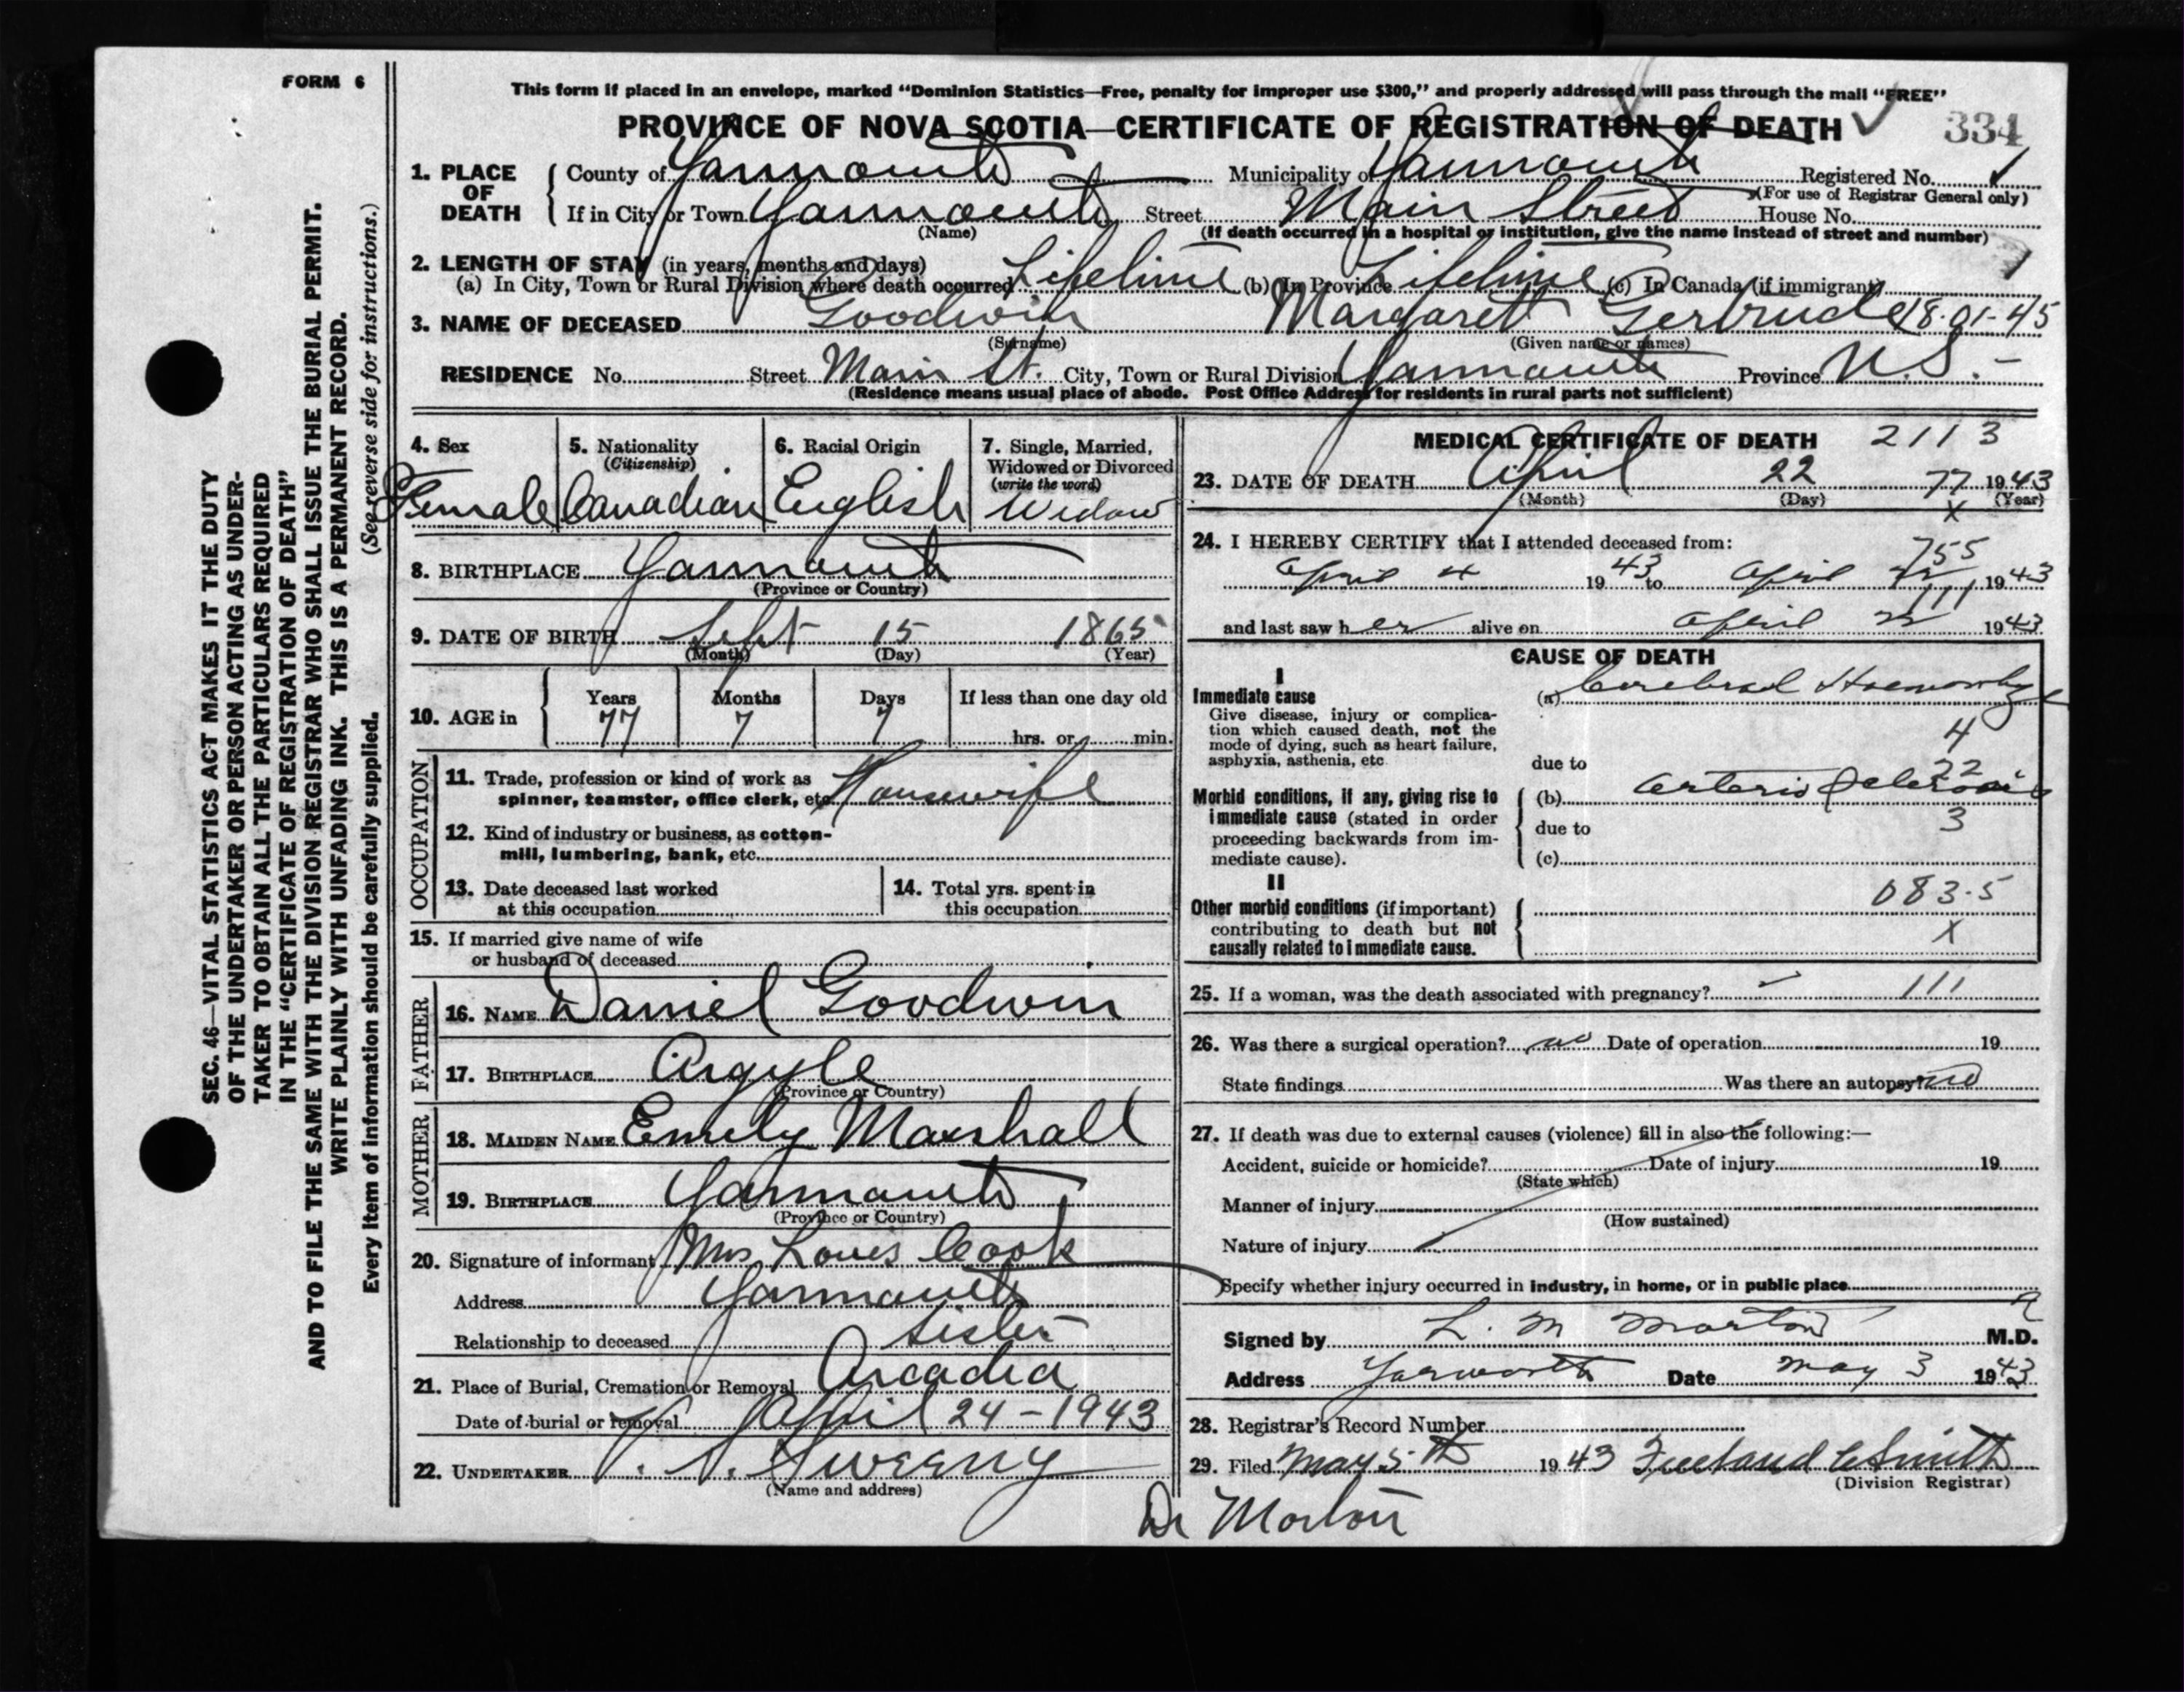 FORM 6
This form if placed in an envelope, marked "Dominion Statistics—Free, penalty for improper use $300," and properly addressed will pass through the mail "FREE"
PROVINCE OF NOVA SCOTIA—CERTIFICATE OF REGISTRATION OF DEATH
334
1. PLACE OF DEATH
County of Yarmouth Municipality of Yarmouth Registered No.
(For use of Registrar General only)
If in City or Town Yarmouth Street Main Street House No.
(Name) (If death occurred in a hospital or institution, give the name instead of street and number)
2. LENGTH OF STAY (in years, months and days)
(a) In City, Town or Rural Division where death occurred Lifetime (b) In Province Lifetime (c) In Canada (if immigrant)
3. NAME OF DECEASED Goodwin Margaret Gertrude 18-01-45
(Surname) (Given name or names)
RESIDENCE No. Street Main St. City, Town or Rural Division Yarmouth Province N.S.-
(Residence means usual place of abode. Post Office Address for residents in rural parts not sufficient)
4. Sex
Female
5. Nationality
(Citizenship)
Canadian
6. Racial Origin
English
7. Single, Married,
Widowed or Divorced
(write the word)
Widow
8. BIRTHPLACE Yarmouth
(Province or Country)
9. DATE OF BIRTH Sept 15 1865
(Month) (Day) (Year)
10. AGE in
Years Months Days If less than one day old
77 7 7 hrs. or min.
OCCUPATION
11. Trade, profession or kind of work as
spinner, teamster, office clerk, etc. Housewife
12. Kind of industry or business, as cotton-
mill, lumbering, bank, etc.
13. Date deceased last worked
at this occupation
14. Total yrs. spent in
this occupation
15. If married give name of wife
or husband of deceased
FATHER
16. NAME Daniel Goodwin
17. BIRTHPLACE Argyle
(Province or Country)
MOTHER
18. MAIDEN NAME Emily Marshall
19. BIRTHPLACE Yarmouth
(Province or Country)
20. Signature of informant Mrs Louis Cook
Address Yarmouth
Relationship to deceased Sister
21. Place of Burial, Cremation or Removal Arcadia
Date of burial or removal April 24-1943
22. UNDERTAKER V. S. Sweeny
(Name and address)
MEDICAL CERTIFICATE OF DEATH 2113
23. DATE OF DEATH April 22 77 1943
(Month) (Day) (Year)
X
24. I HEREBY CERTIFY that I attended deceased from:
755
April 4 1943 to April 22 1943
111
and last saw her alive on April 22 1943
CAUSE OF DEATH
I
Immediate cause
Give disease, injury or complica-
tion which caused death, not the
mode of dying, such as heart failure,
asphyxia, asthenia, etc
(a) Cerebral Haemorhge
4
due to
22
Morbid conditions, if any, giving rise to
immediate cause (stated in order
proceeding backwards from im-
mediate cause).
(b) Arterio Sclerosis
due to 3
(c)
II
Other morbid conditions (if important)
contributing to death but not
causally related to immediate cause.
083.5
X
25. If a woman, was the death associated with pregnancy? - 111
26. Was there a surgical operation? no Date of operation 19
State findings Was there an autopsy? no
27. If death was due to external causes (violence) fill in also the following:—
Accident, suicide or homicide? Date of injury 19
(State which)
Manner of injury
(How sustained)
Nature of injury
Specify whether injury occurred in industry, in home, or in public place
Signed by L. M Morton M.D.
Address Yarmouth Date May 3 1943
28. Registrar's Record Number
29. Filed May 5th 1943 Freeland C Smith
(Division Registrar)
Dr Morton
SEC. 46—VITAL STATISTICS ACT MAKES IT THE DUTY
OF THE UNDERTAKER OR PERSON ACTING AS UNDER-
TAKER TO OBTAIN ALL THE PARTICULARS REQUIRED
IN THE "CERTIFICATE OF REGISTRATION OF DEATH"
AND TO FILE THE SAME WITH THE DIVISION REGISTRAR WHO SHALL ISSUE THE BURIAL PERMIT.
WRITE PLAINLY WITH UNFADING INK. THIS IS A PERMANENT RECORD.
Every item of information should be carefully supplied. (See reverse side for instructions.)